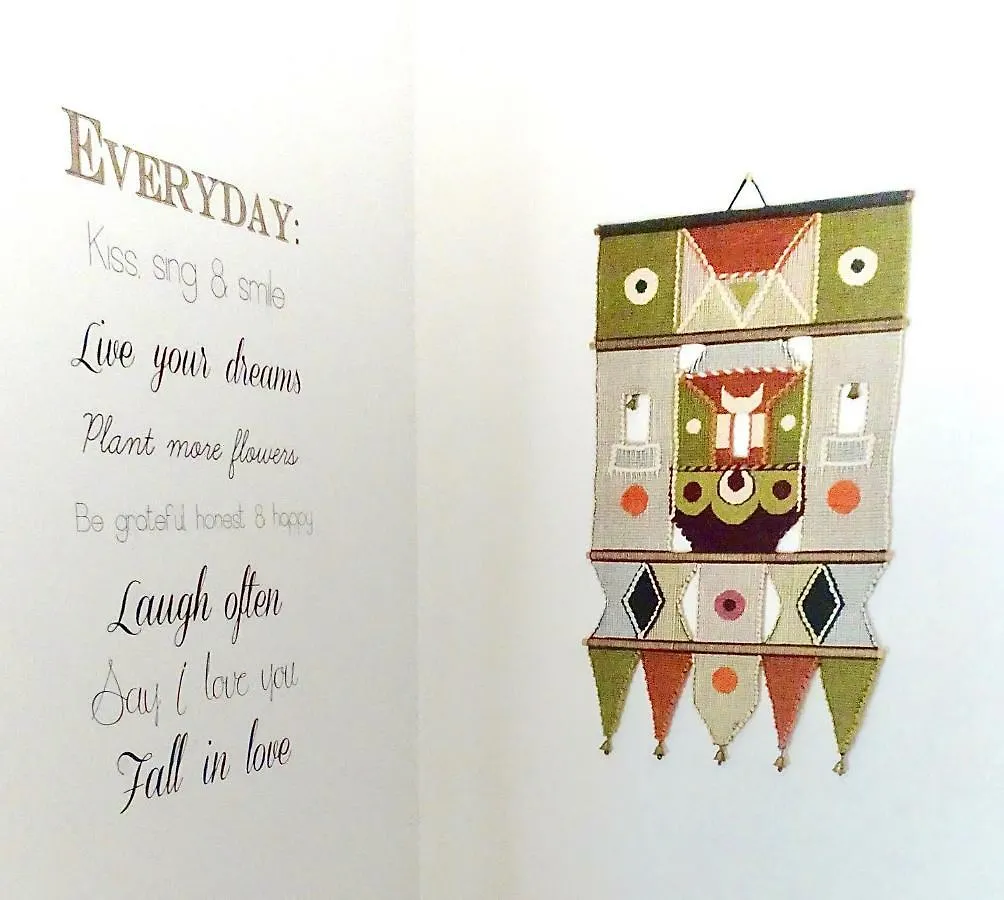 EVERYDAY:
Kiss, sing & smile
Live your dreams
Plant more flowers
Be grateful honest & happy
Laugh often
Say i love you
Fall in love